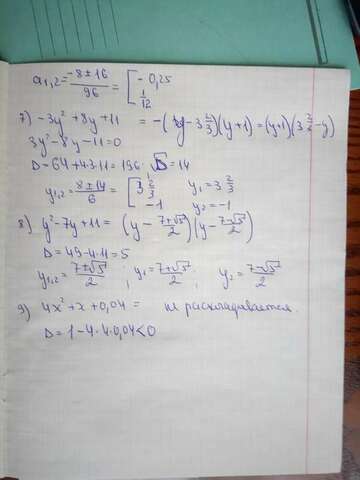 a₁,₂ = (-8 ± 16)/96 = [ -0,25
1/12
7) -3y² + 8y + 11 = -(y - 3 2/3)(y + 1) = (y+1)(3 2/3 - y)
3y² - 8y - 11 = 0
D = 64 + 4·3·11 = 196 √D = 14
y₁,₂ = (8 ± 14)/6 = [ 3 2/3 y₁ = 3 2/3
-1 y₂ = -1
8) y² - 7y + 11 = (y - (7+√5)/2)(y - (7-√5)/2)
D = 49 - 4·11 = 5
y₁,₂ = (7±√5)/2 ; y₁ = (7+√5)/2 ; y₂ = (7-√5)/2
9) 4x² + x + 0,04 = не раскладывается.
D = 1 - 4·4·0,04 < 0